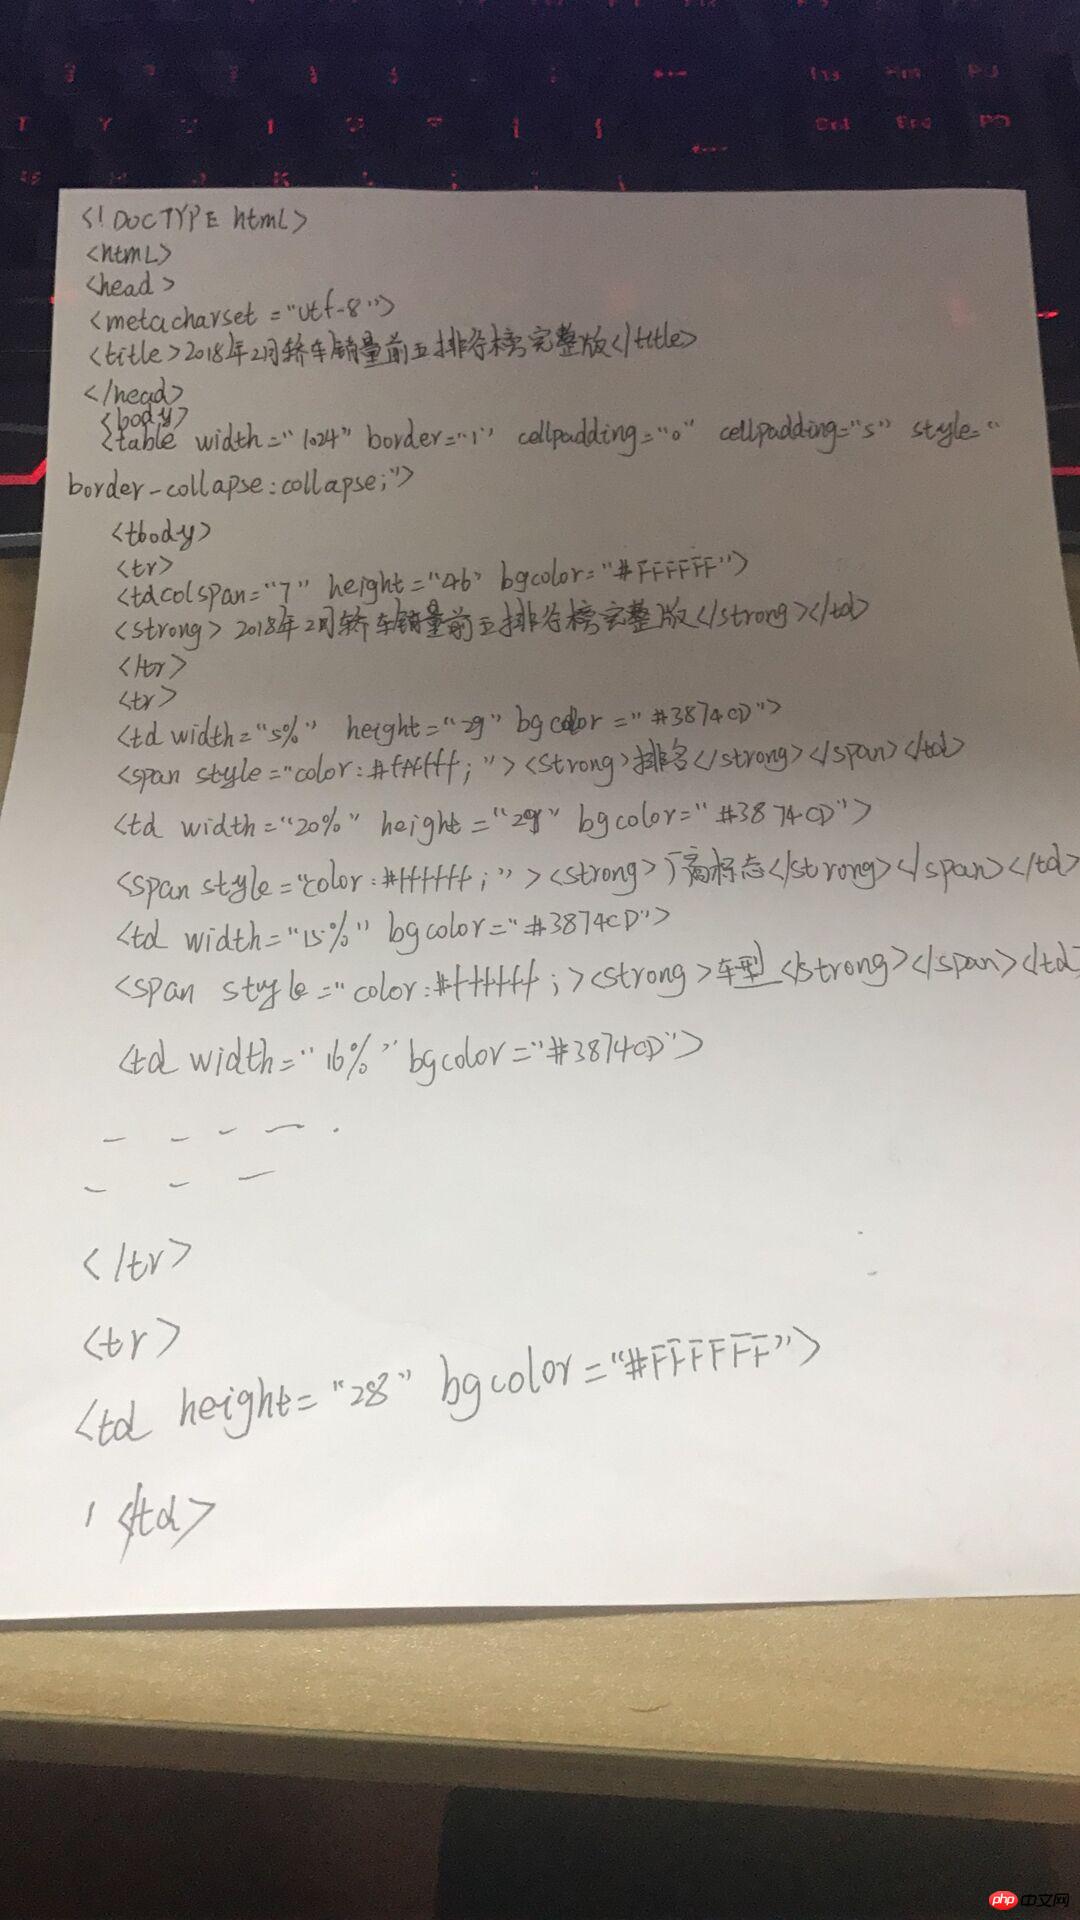 <!DOCTYPE html>
<html>
<head>
<meta charset="utf-8">
<title>2018年2月轿车销量前五排名榜完整版</title>
</head>
<body>
<table width="1024" border="1" cellpadding="0" cellpadding="5" style="
border-collapse:collapse;">
<tbody>
<tr>
<td colspan="7" height="46" bgcolor="#FFFFFF">
<strong>2018年2月轿车销量前五排名榜完整版</strong></td>
</tr>
<tr>
<td width="5%" height="29" bgcolor="#3874CD">
<span style="color:#ffffff;"><strong>排名</strong></span></td>
<td width="20%" height="29" bgcolor="#3874CD">
<span style="color:#ffffff;"><strong>厂商标志</strong></span></td>
<td width="15%" bgcolor="#3874CD">
<span style="color:#ffffff;><strong>车型</strong></span></td>
<td width="16%" bgcolor="#3874CD">
</tr>
<tr>
<td height="28" bgcolor="#FFFFFF">
1 </td>
php 中文网